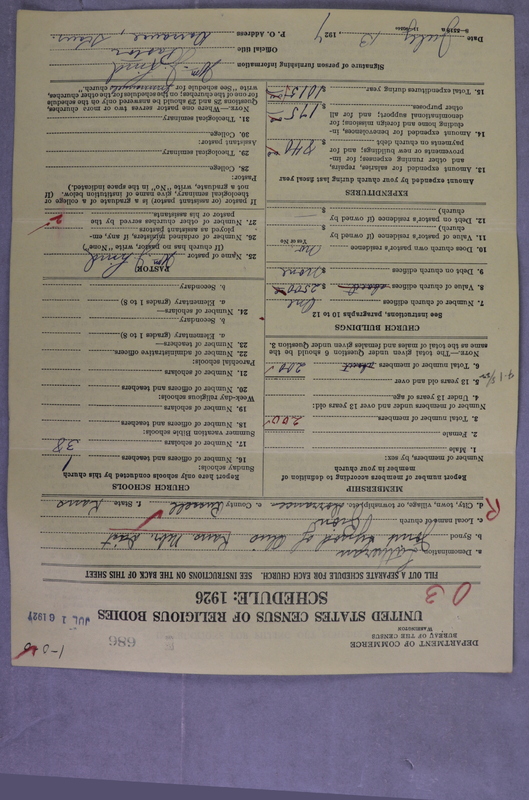 DEPARTMENT OF COMMERCE
BUREAU OF THE CENSUS
WASHINGTON
686
JUL 16 1927
UNITED STATES CENSUS OF RELIGIOUS BODIES
SCHEDULE: 1926
03
FILL OUT A SEPARATE SCHEDULE FOR EACH CHURCH. SEE INSTRUCTIONS ON THE BACK OF THIS SHEET
a. Denomination Lutheran
b. Synod Joint Synod of Ohio Kans Nebr. Dist
c. Local name of church Zion's
d. City, town, village, or township Dorrance e. County Russell f. State Kans
R
MEMBERSHIP
Report number of members according to definition of
member in your church
Number of members, by sex:
1. Male
2. Female
3. Total number of members 200
Number of members under and over 13 years old:
4. Under 13 years of age
5. 13 years old and over
6. Total number of members about 200
NOTE.—The total given under Question 6 should be the
same as the total of males and females given under Question 3.
CHURCH BUILDINGS
See instructions, paragraphs 10 to 12
7. Number of church edifices One
8. Value of church edifices $ 2500
9. Debt on church edifices $ None
10. Does church own pastor's residence No
Yes or No
11. Value of pastor's residence (if owned by
church) $
12. Debt on pastor's residence (if owned by
church) $
EXPENDITURES
Amount expended by your church during last fiscal year
13. Amount expended for salaries, repairs,
and other running expenses; for im-
provements or new buildings; and for
payments on church debt $ 840
14. Amount expended for benevolences, in-
cluding home and foreign missions; for
denominational support; and for all
other purposes $ 175
15. Total expenditures during year $ 1015
CHURCH SCHOOLS
Report here only schools conducted by this church
Sunday schools:
16. Number of officers and teachers 1
17. Number of scholars 38
Summer vacation Bible schools:
18. Number of officers and teachers
19. Number of scholars
Week-day religious schools:
20. Number of officers and teachers
21. Number of scholars
Parochial schools:
22. Number of administrative officers
23. Number of teachers—
a. Elementary (grades 1 to 8)
b. Secondary
24. Number of scholars—
a. Elementary (grades 1 to 8)
b. Secondary
PASTOR
25. Name of pastor
(If church has no pastor, write "None")
26. Number of ordained ministers, if any, em-
ployed as assistant pastors
27. Number of other churches served by the
pastor or his assistants 2
If pastor (or assistant pastor) is a graduate of a college or
theological seminary, give name of institution below. (If
not a graduate, write "No," in the space indicated.)
Pastor:
28. College
29. Theological seminary
Assistant pastor:
30. College
31. Theological seminary
NOTE.—Where one pastor serves two or more churches,
Questions 28 and 29 should be answered only on the schedule
for one of the churches; on the schedules for the other churches,
write "See schedule for church."
Signature of person furnishing information
Official title Pastor
P. O. Address Dorrance, Kans.
Date July 13 1927